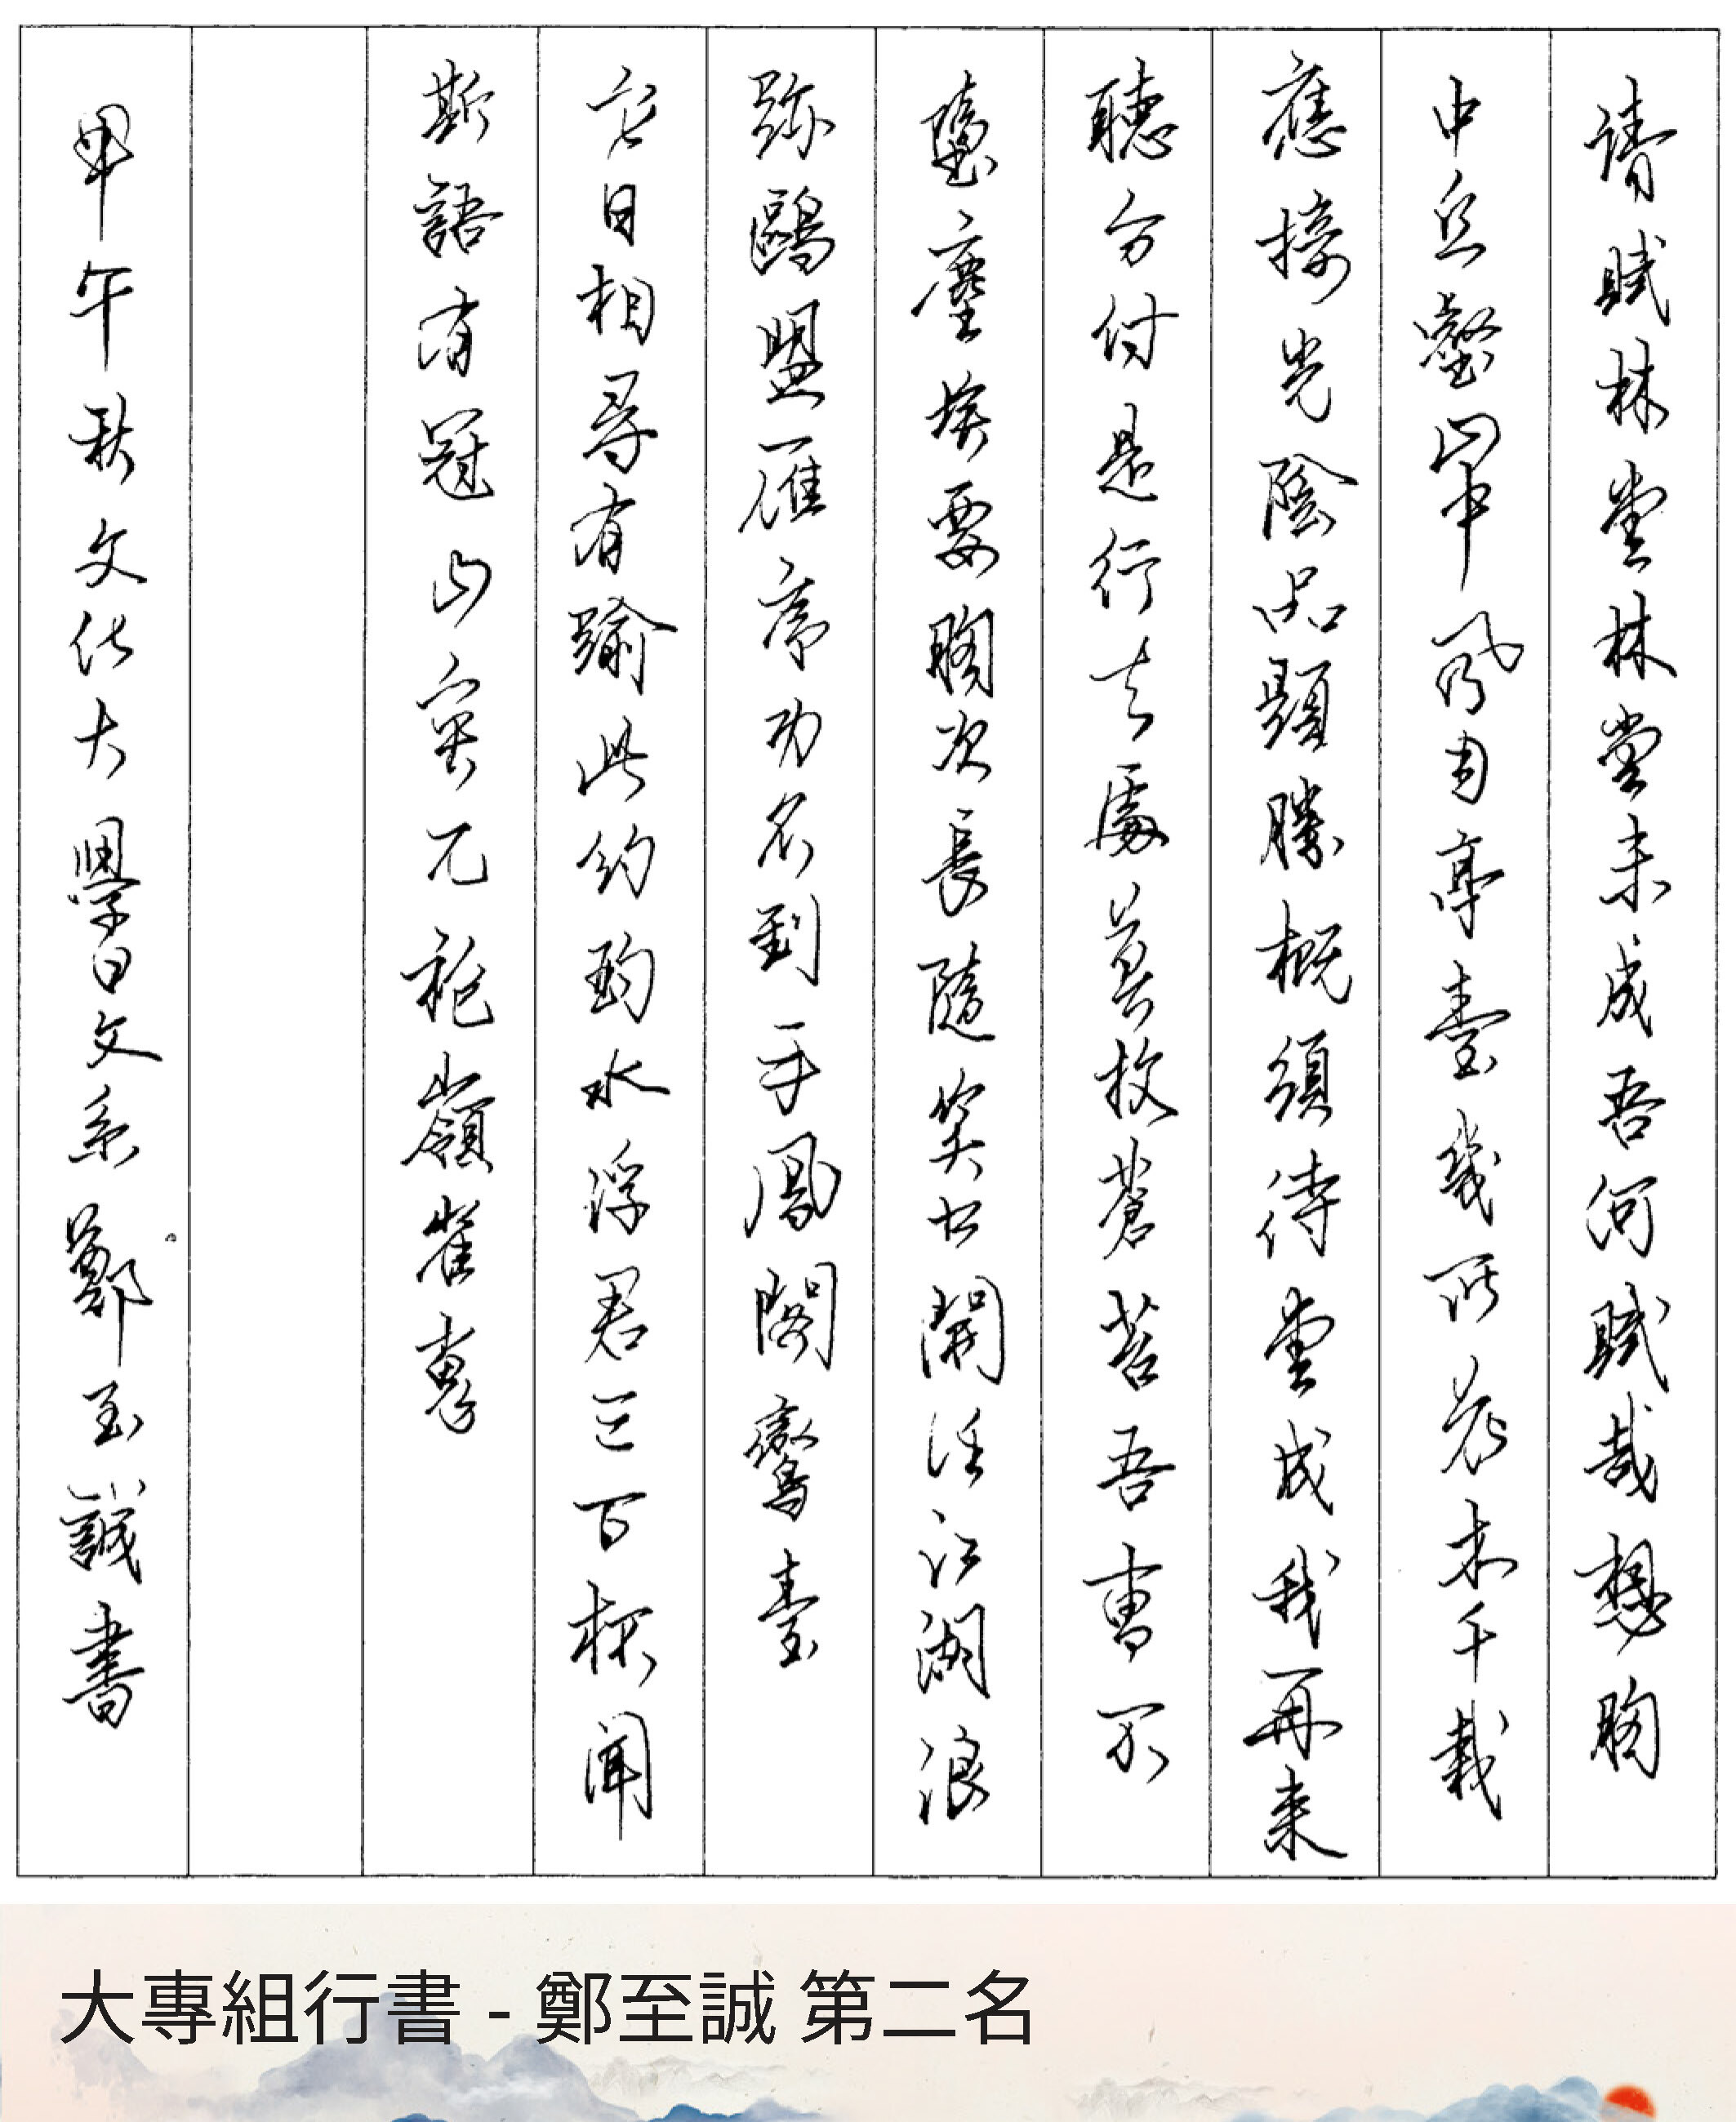 請賦林堂林堂未成吾何賦哉想胸
中丘壑山中風月亭臺幾所花木千栽
應接光陰品題勝概須待堂成我再來
聽分付是行去處莫放蒼苔吾曹不
墮塵埃要胸次長隨笑口開任江湖浪
跡鷗盟雁序功名到手鳳閣鸞臺
它日相尋有踰此約酌水浮君三百杯聞
斯語有冠山突兀袍嶺崔嵬
甲午秋文化大學日文系鄭至誠書
大專組行書 - 鄭至誠 第二名